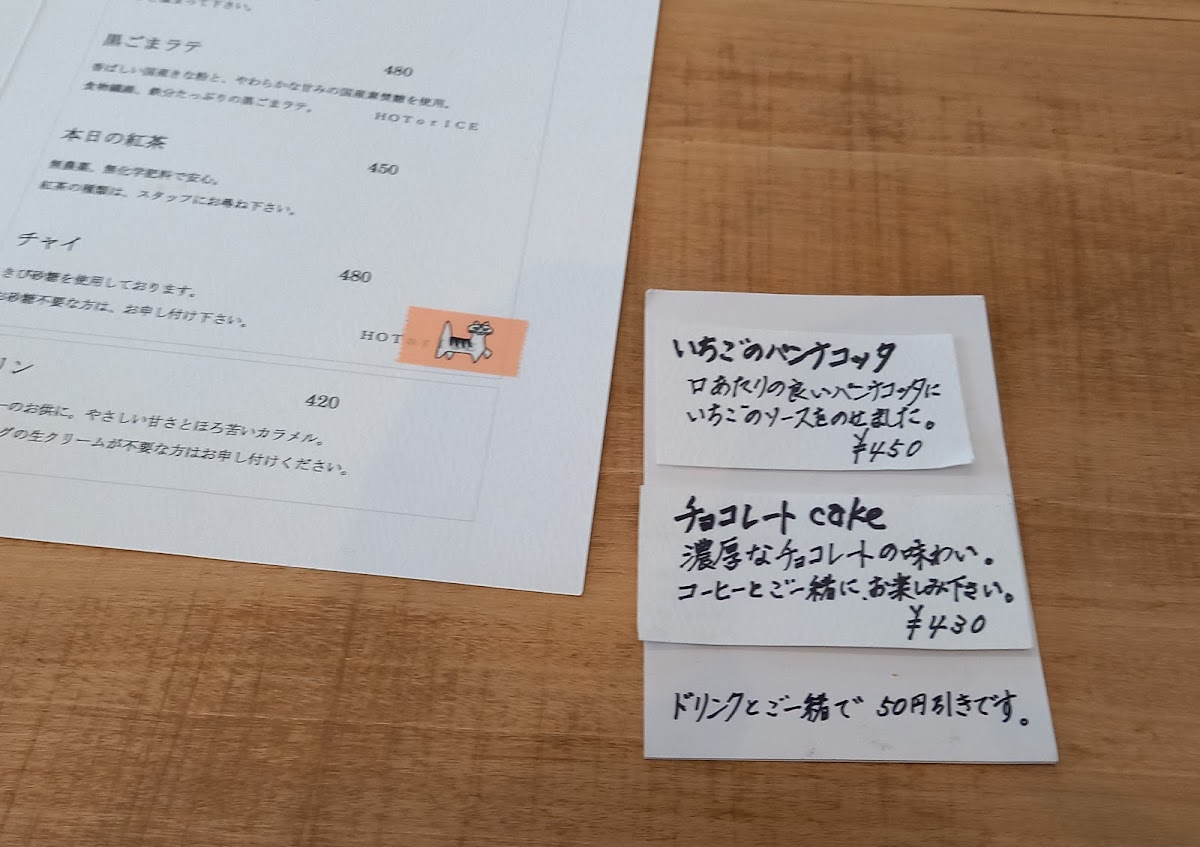 黒ごまラテ
480
香ばしい国産きな粉と、やわらかな甘みの国産甜菜糖を使用。
食物繊維、鉄分たっぷりの黒ごまラテ。
HOTorICE
本日の紅茶
450
無農薬、無化学肥料で安心。
紅茶の種類は、スタッフにお尋ね下さい。
チャイ
480
きび砂糖を使用しております。
お砂糖不要な方は、お申し付け下さい。
HOT
リン
420
ーのお供に。やさしい甘さとほろ苦いカラメル。
グの生クリームが不要な方はお申し付けください。
いちごのパンナコッタ
口あたりの良いパンナコッタに
いちごのソースをのせました。
¥450
チョコレートcake
濃厚なチョコレートの味わい。
コーヒーとご一緒に、お楽しみ下さい。
¥430
ドリンクとご一緒で 50円引きです。